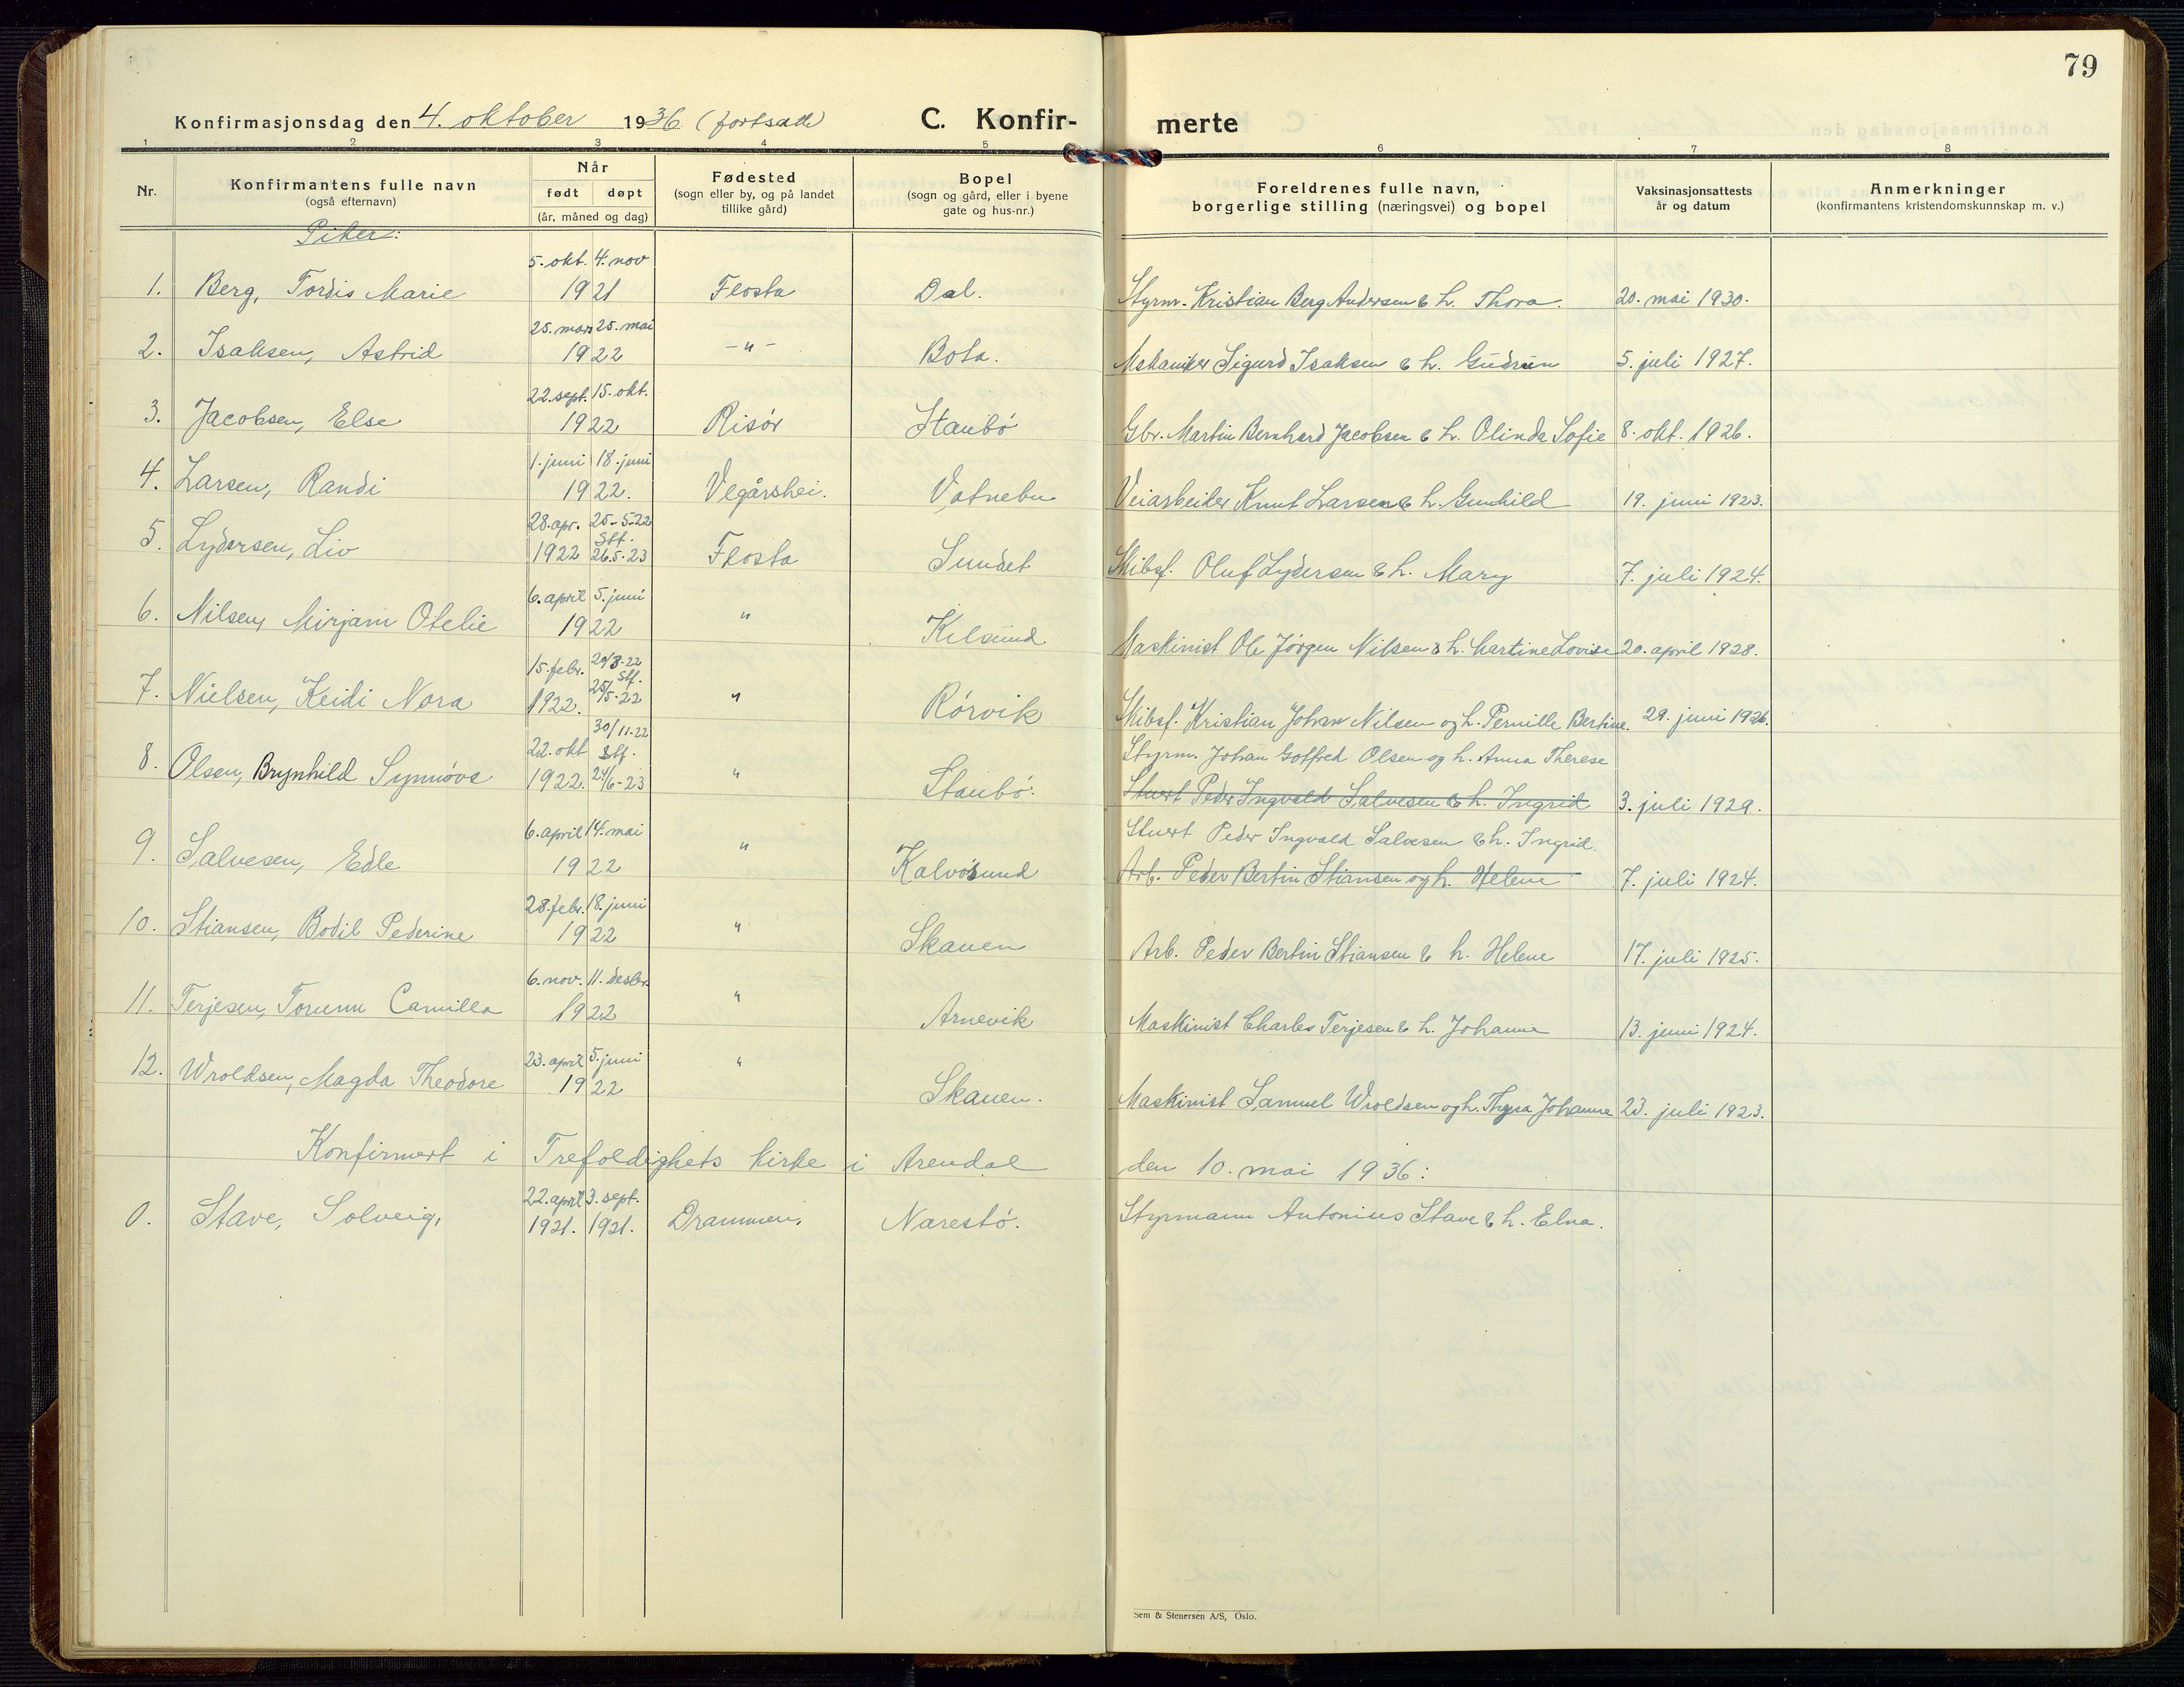 79
Konfirmasjonsdag den 4. oktober 1936 (fortsatt) C. Konfir- merte
1 2 3 4 5 6 7 8
Nr. Konfirmantens fulle navn (også efternavn) Når født døpt (år, måned og dag) Fødested (sogn eller by, og på landet tillike gård) Bopel (sogn og gård, eller i byene gate og hus-nr.) Foreldrenes fulle navn, borgerlige stilling (næringsvei) og bopel Vaksinasjonsattests år og datum Anmerkninger (konfirmantens kristendomskunnskap m. v.)
Piker:
5. okt. 4. nov
1. Berg, Tordis Marie 1921 Flosta Dal. Styrm. Kristian Berg Andersen & h. Thora. 20. mai 1930.
25. mars 25. mai
2. Isaksen, Astrid 1922 -"- Bota. Mekaniker Sigurd Isaksen & h. Gudrun 5. juli 1927.
22. sept. 15. okt.
3. Jacobsen, Else 1922 Risør Staubø Gbr. Martin Bernhard Jacobsen & h. Olinda Sofie 8. okt. 1926.
1. juni 18. juni
4. Larsen, Randi 1922. Vegårshei. Vatnebu Veiarbeider Knut Larsen & h. Gunhild 19. juni 1923.
28. apr. 25-5-22
Stf.
5. Lydersen, Liv 1922 26.5-23 Flosta Sundet Skibsf. Oluf Lydersen & h. Mary 7. juli 1924.
6. april 5. juni
6. Nilsen, Mirjam Otelie 1922 " Kilsund Maskinist Ole Jørgen Nilsen & h. Martine Lovise 20. april 1928.
15. febr. 20/3-22
Stf.
7. Nielsen, Heidi Nora 1922. 25/5-22 " Rørvik Skibsf. Kristian Johan Nilsen og h. Pernille Bertine. 29. juni 1926.
30/11-22
22. okt Stf. Styrm. Johan Gotfred Olsen og h. Anna Therese
8. Olsen, Brynhild Synnøve 1922. 24/6-23 " Staubø. Stuert Peder Ingvald Salvesen & h. Ingrid 3. juli 1929.
6. april 14. mai Stuert Peder Ingvald Salvesen & h. Ingrid.
9. Salvesen, Edle 1922 " Kalvøsund Arb. Peder Bertin Stiansen og h. Helene 7. juli 1924.
28. febr. 18. juni
10. Stiansen, Bodil Pederine 1922 " Skauen Arb. Peder Bertin Stiansen & h. Helene 17. juli 1925.
6. nov. 11. desbr.
11. Terjesen, Torunn Camilla 1922 " Arnevik Maskinist Charles Terjesen & h. Johanne 13. juni 1924.
23. april 5. juni
12. Wroldsen, Magda Theodore 1922 " Skauen. Maskinist Samuel Wroldsen og h. Thyra Johanne 23. juli 1923.
Konfirmert i Trefoldighets kirke i Arendal den 10. mai 1936:
22. april 3. sept.
0. Stave, Solveig, 1921. 1921. Drammen. Narestø. Styrmann Antonius Stave & h. Elna.
Sem & Stenersen A/S, Oslo.